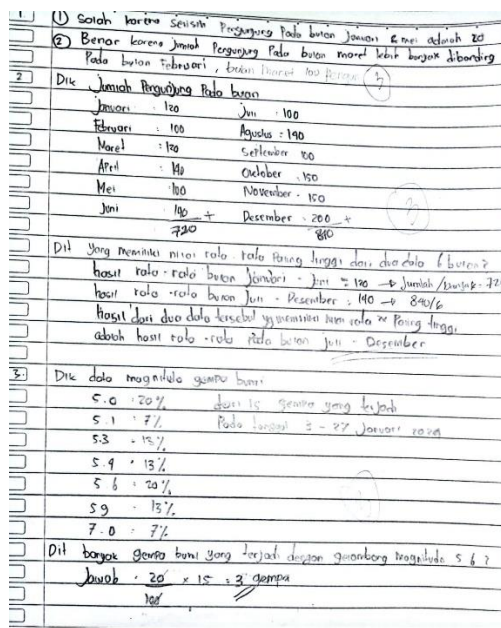 1 ① Salah karena selisih Pengunjung Pada bulan Januari & mei adalah 20
② Benar karena jumlah Pengunjung Pada bulan maret lebih banyak dibanding
Pada bulan Februari, bulan maret 100
2 Dik Jumlah Pengunjung Pada bulan
Januari : 120 Juli : 100
Februari : 100 Agustus : 190
Maret : 120 September 100
April : 140 October : 150
Mei : 100 November : 150
Juni : 140 + Desember : 200 +
720 840
Dit yang memiliki nilai rata-rata Paling tinggi dari dua data 6 bulan?
hasil rata-rata bulan Januari - Juni = 120 → Jumlah / banyak = 72
hasil rata-rata bulan Juli - Desember : 140 → 840/6
Hasil dari dua data tersebut yg memiliki rata Paling tinggi
adalah hasil rata-rata Pada bulan Juli - Desember
3. Dik data magnitudo gempa bumi
5.0 : 20% dari 15 gempa yang terjadi
5.1 : 7% Pada tanggal - 27 Januari
5.3 = 13%
5.9 : 13%
5.6 : 20%
59 : 13%
7.0 : 7%
Dit banyak gempa bumi yang terjadi dengan gelombang magnitudo 5 6 ?
Jawab : 20 × 15 = 3 gempa
100